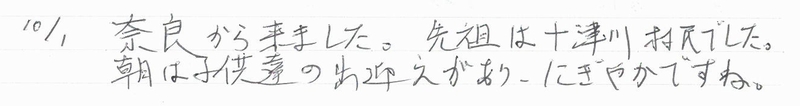 10/1 奈良から来ました。先祖は十津川村民でした。
朝は子供達の出迎えがあり、にぎやかですね。